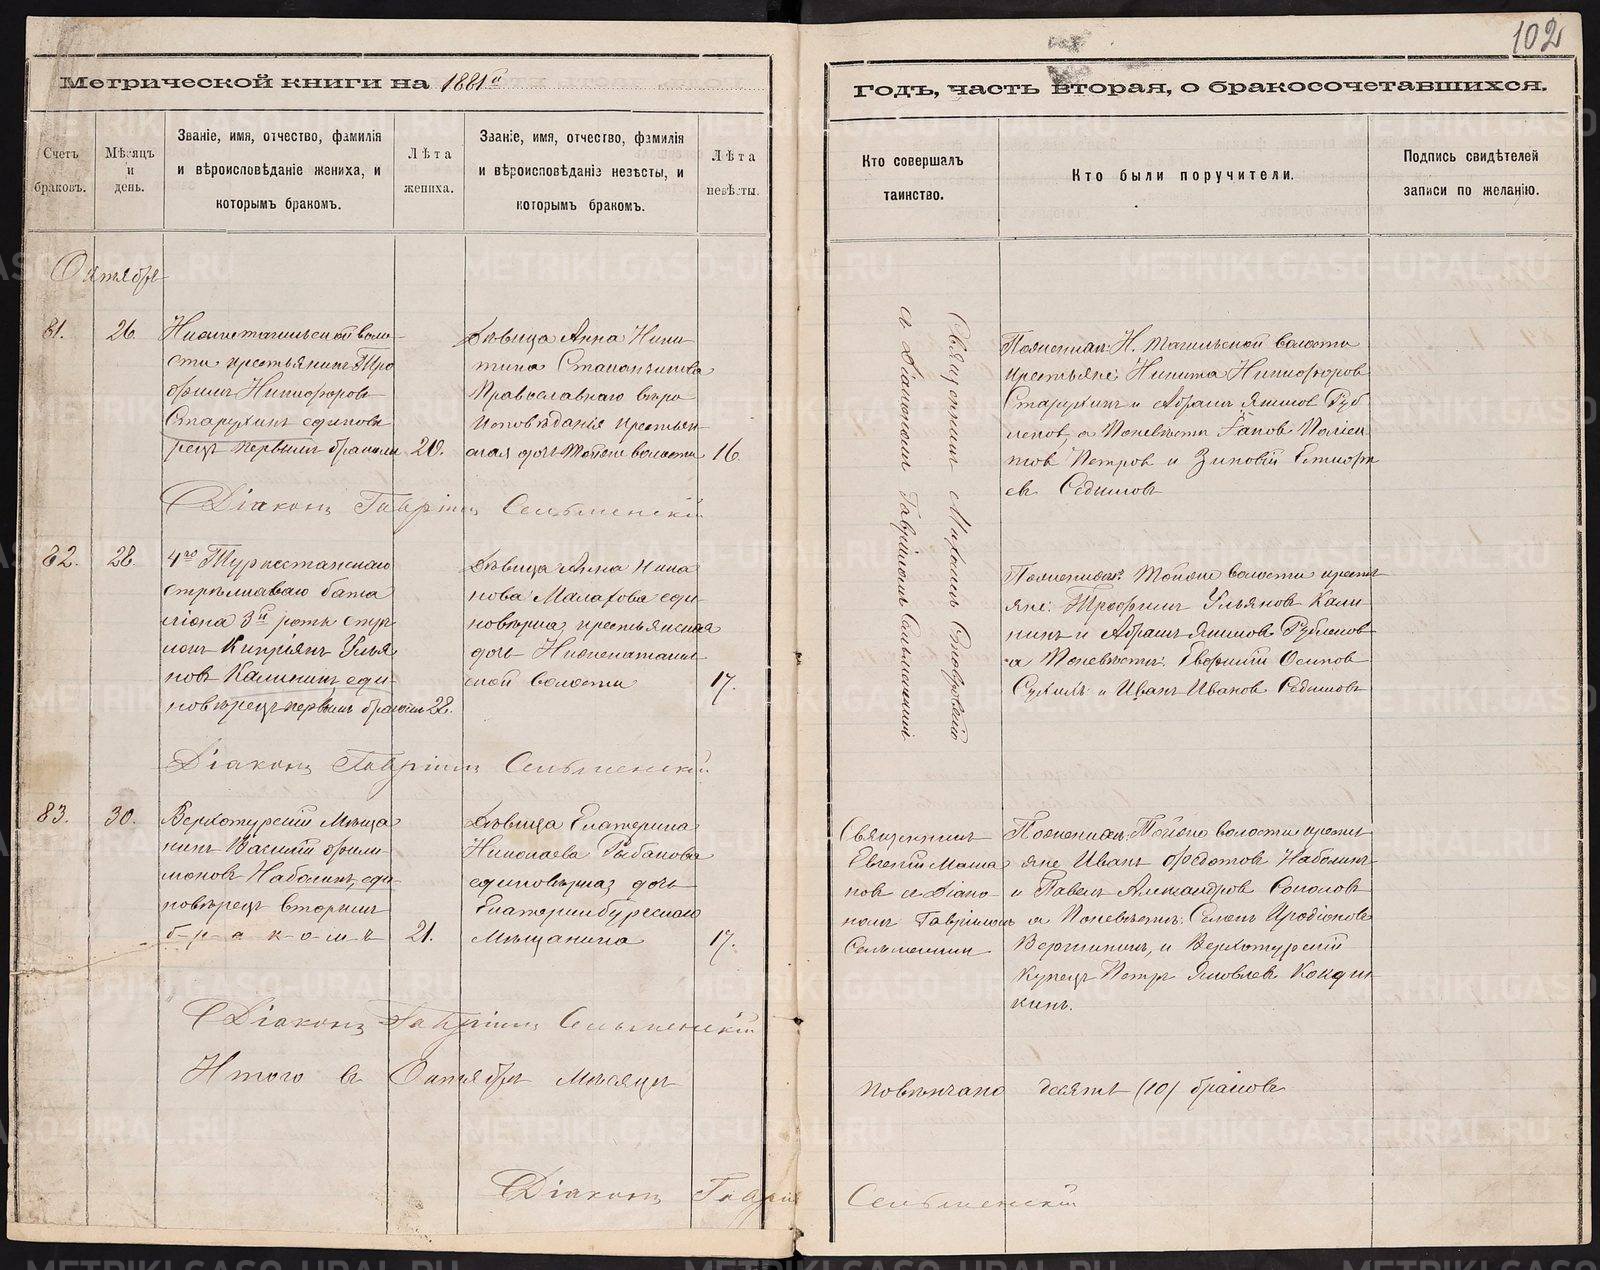 102
Метрической книги на 1881й
Годъ, часть вторая, о бракосочетавшихся.
Счетъ браковъ.
Мѣсяцъ и день.
Званіе, имя, отчество, фамилія и вѣроисповѣданіе жениха, и которымъ бракомъ.
Лѣта жениха.
Званіе, имя, отчество, фамилія и вѣроисповѣданіе невѣсты, и которымъ бракомъ.
Лѣта невѣсты.
Кто совершалъ таинство.
Кто были поручители.
Подпись свидѣтелей записи по желанію.
Октябрь
81.
26.
Нижнетагильской воло-
сти крестьянинъ Тро
фимъ Никифоровъ
Старухинъ единовѣ
рецъ первымъ бракомъ
20.
Дѣвица Анна Ники
тина
Православнаго вѣро
исповѣданія крестьян-
ская дочь тойже волости
16.
Священникъ Михаилъ
съ Діакономъ Гавріиломъ Сельменскимъ
По женихѣ: Н. Тагильской волости
крестьяне: Никита Никифоровъ
Старухинъ и Абрамъ Якимовъ Руб
левовъ, а по невѣстѣ
Петровъ и Зиновій
Седышовъ
Діаконъ Гавріилъ Сельменскій
82.
28.
4го Туркестанскаго
стрѣлковаго бата
ліона 3й роты стрѣ
локъ Кипріянъ Улья
новъ Калининъ еди-
новѣрецъ первымъ бракомъ
22.
Дѣвица Анна
Малахова еди-
новѣрка крестьянская
дочь Нижнетагиль
ской волости
17.
По женихѣ: тойже волости кресть
яне: Трофимъ Ульяновъ Кали
нинъ и Абрамъ Якимовъ Рублевовъ
а по невѣстѣ: Евфимій Осиповъ
Сухихъ и Иванъ Ивановъ Седышовъ
Діаконъ Гавріилъ Сельменскій
83.
30.
Верхотурскій мѣща
нинъ Василій Фили
моновъ Наболинъ, еди-
новѣрецъ вторымъ
б-р-а-к-о-м-ъ
21.
Дѣвица Екатерина
Николаева Рыбакова
единовѣрка, дочь
Екатеринбургскаго
мѣщанина
17.
Священникъ
Евгеній
съ Діако-
номъ Гавріиломъ
Сельменскимъ
По женихѣ: Тойже волости кресть
яне Иванъ Федотовъ Наболинъ
и Павелъ Александровъ Соколовъ
а по невѣстѣ: Семенъ Иродіоновъ
и Верхотурскій
купецъ Петръ Яковлевъ Конди
кинъ.
Діаконъ Гавріилъ Сельменскій
Итого въ Октябрѣ мѣсяцѣ повѣнчано десять (10) браковъ
Діаконъ Гавріилъ Сельменскій
METRIKI.GASO-URAL.RU